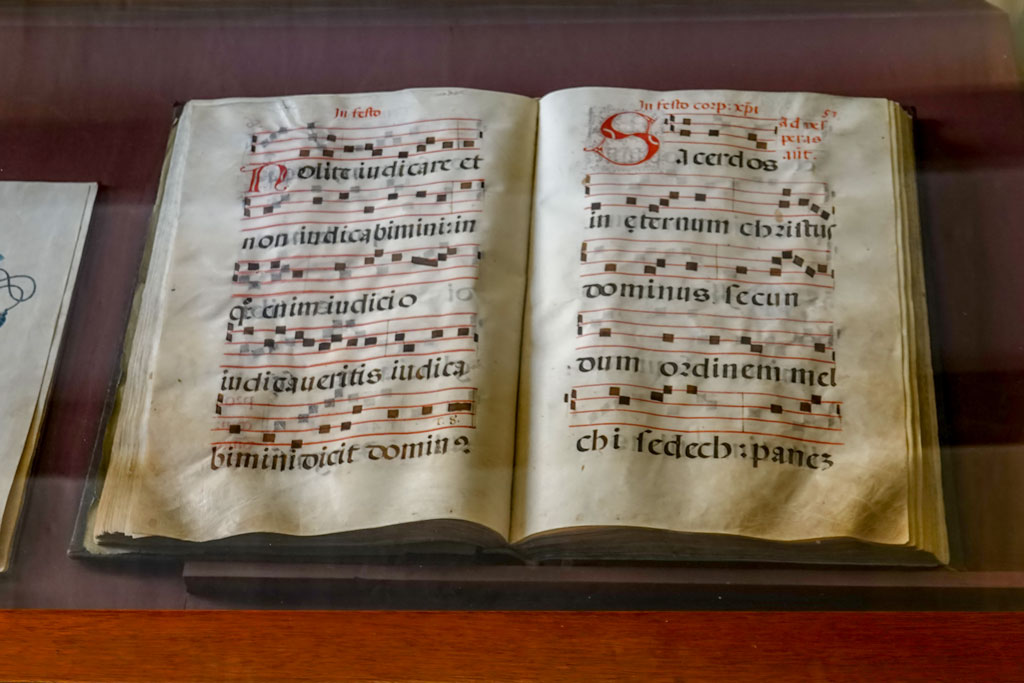 In festo
Nolite iudicare et
non iudicabimini: in
q° enim iudicio
iudicaueritis iudica
bimini dicit domin9
In festo corp: xp̄i 57
ad ves
peras
añt.
Sacerdos
in ęternum christus
dominus secun
dum ordinem mel
chisedech: panez